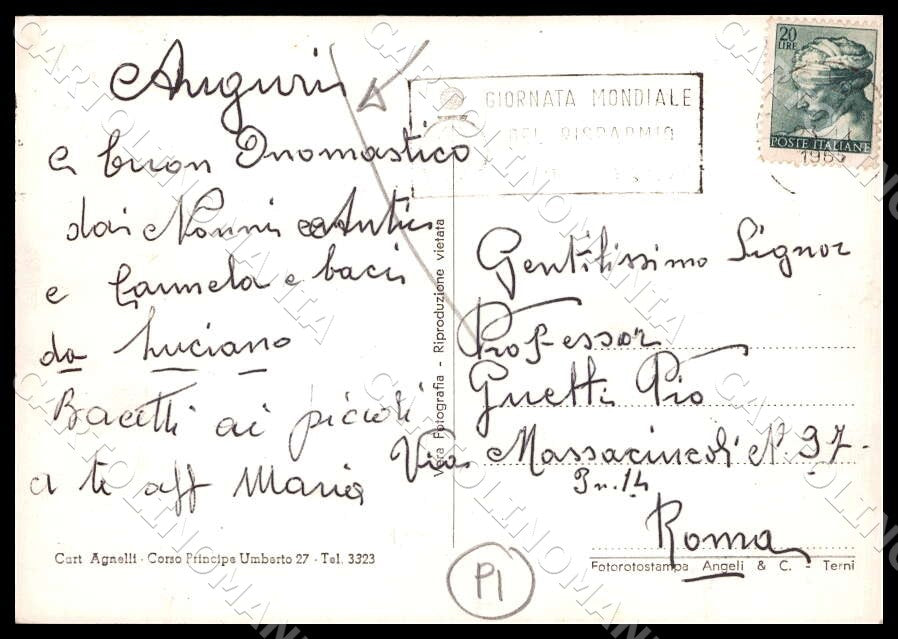 Auguri
e buon Onomastico
dai Nonni Antis
e Carmela e bacis
da Luciano
Bacetti ai piccoli
a te aff Maria
Cart Agnelli - Corso Principe Umberto 27 - Tel. 3323
Vera Fotografia - Riproduzione vietata
GIORNATA MONDIALE
DEL RISPARMIO
20
LIRE
POSTE ITALIANE
Gentilissimo Signor
Professor
Guetti Pio
Via Massaciuccoli N. 97-
In. 14
Roma
Fotorotostampa Angeli & C. - Terni
P1
CARTOLINOMANIA